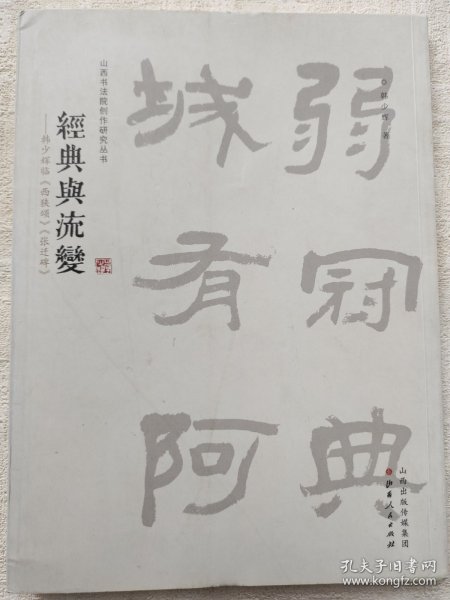 韩少辉 著
弱冠典
城有阿
山西书法院创作研究丛书
經典與流變
——韩少辉临《西狭颂》《张迁碑》
山西出版传媒集团
山西人民出版社
孔夫子旧书网
www.kongfz.com